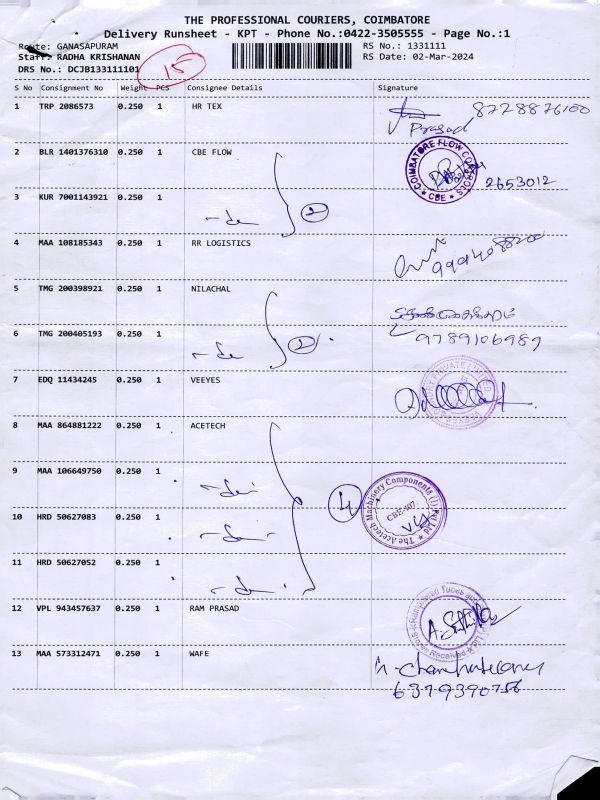 THE PROFESSIONAL COURIERS, COIMBATORE
Delivery Runsheet - KPT - Phone No.:0422-3505555 - Page No.:1
Route: GANASAPURAM
RS No.: 1331111
Staff: RADHA KRISHANAN
RS Date: 02-Mar-2024
DRS No.: DCJB133111101
15
S No Consignment No Weight PCS Consignee Details Signature
1 TRP 2086573 0.250 1 HR TEX 8228826100
Prasad
2 BLR 1401376310 0.250 1 CBE FLOW
COIMBATORE FLOW CBE
2653012
3 KUR 7001143921 0.250 1
-do 2
4 MAA 108185343 0.250 1 RR LOGISTICS
5 TMG 200398921 0.250 1 NILACHAL
6 TMG 200405193 0.250 1 9789106989
-do 2
7 EDQ 11434245 0.250 1 VEEYES
PRIVATE LIMITED
8 MAA 864881222 0.250 1 ACETECH
9 MAA 106649750 0.250 1
-do 4
The Acetech Machinery Components (I) Pvt Ltd
CBE-107
10 HRD 50627083 0.250 1
-do
11 HRD 50627052 0.250 1
-do
12 VPL 943457637 0.250 1 RAM PRASAD
Tubes and
Received
13 MAA 573312471 0.250 1 WAFE
6379390756